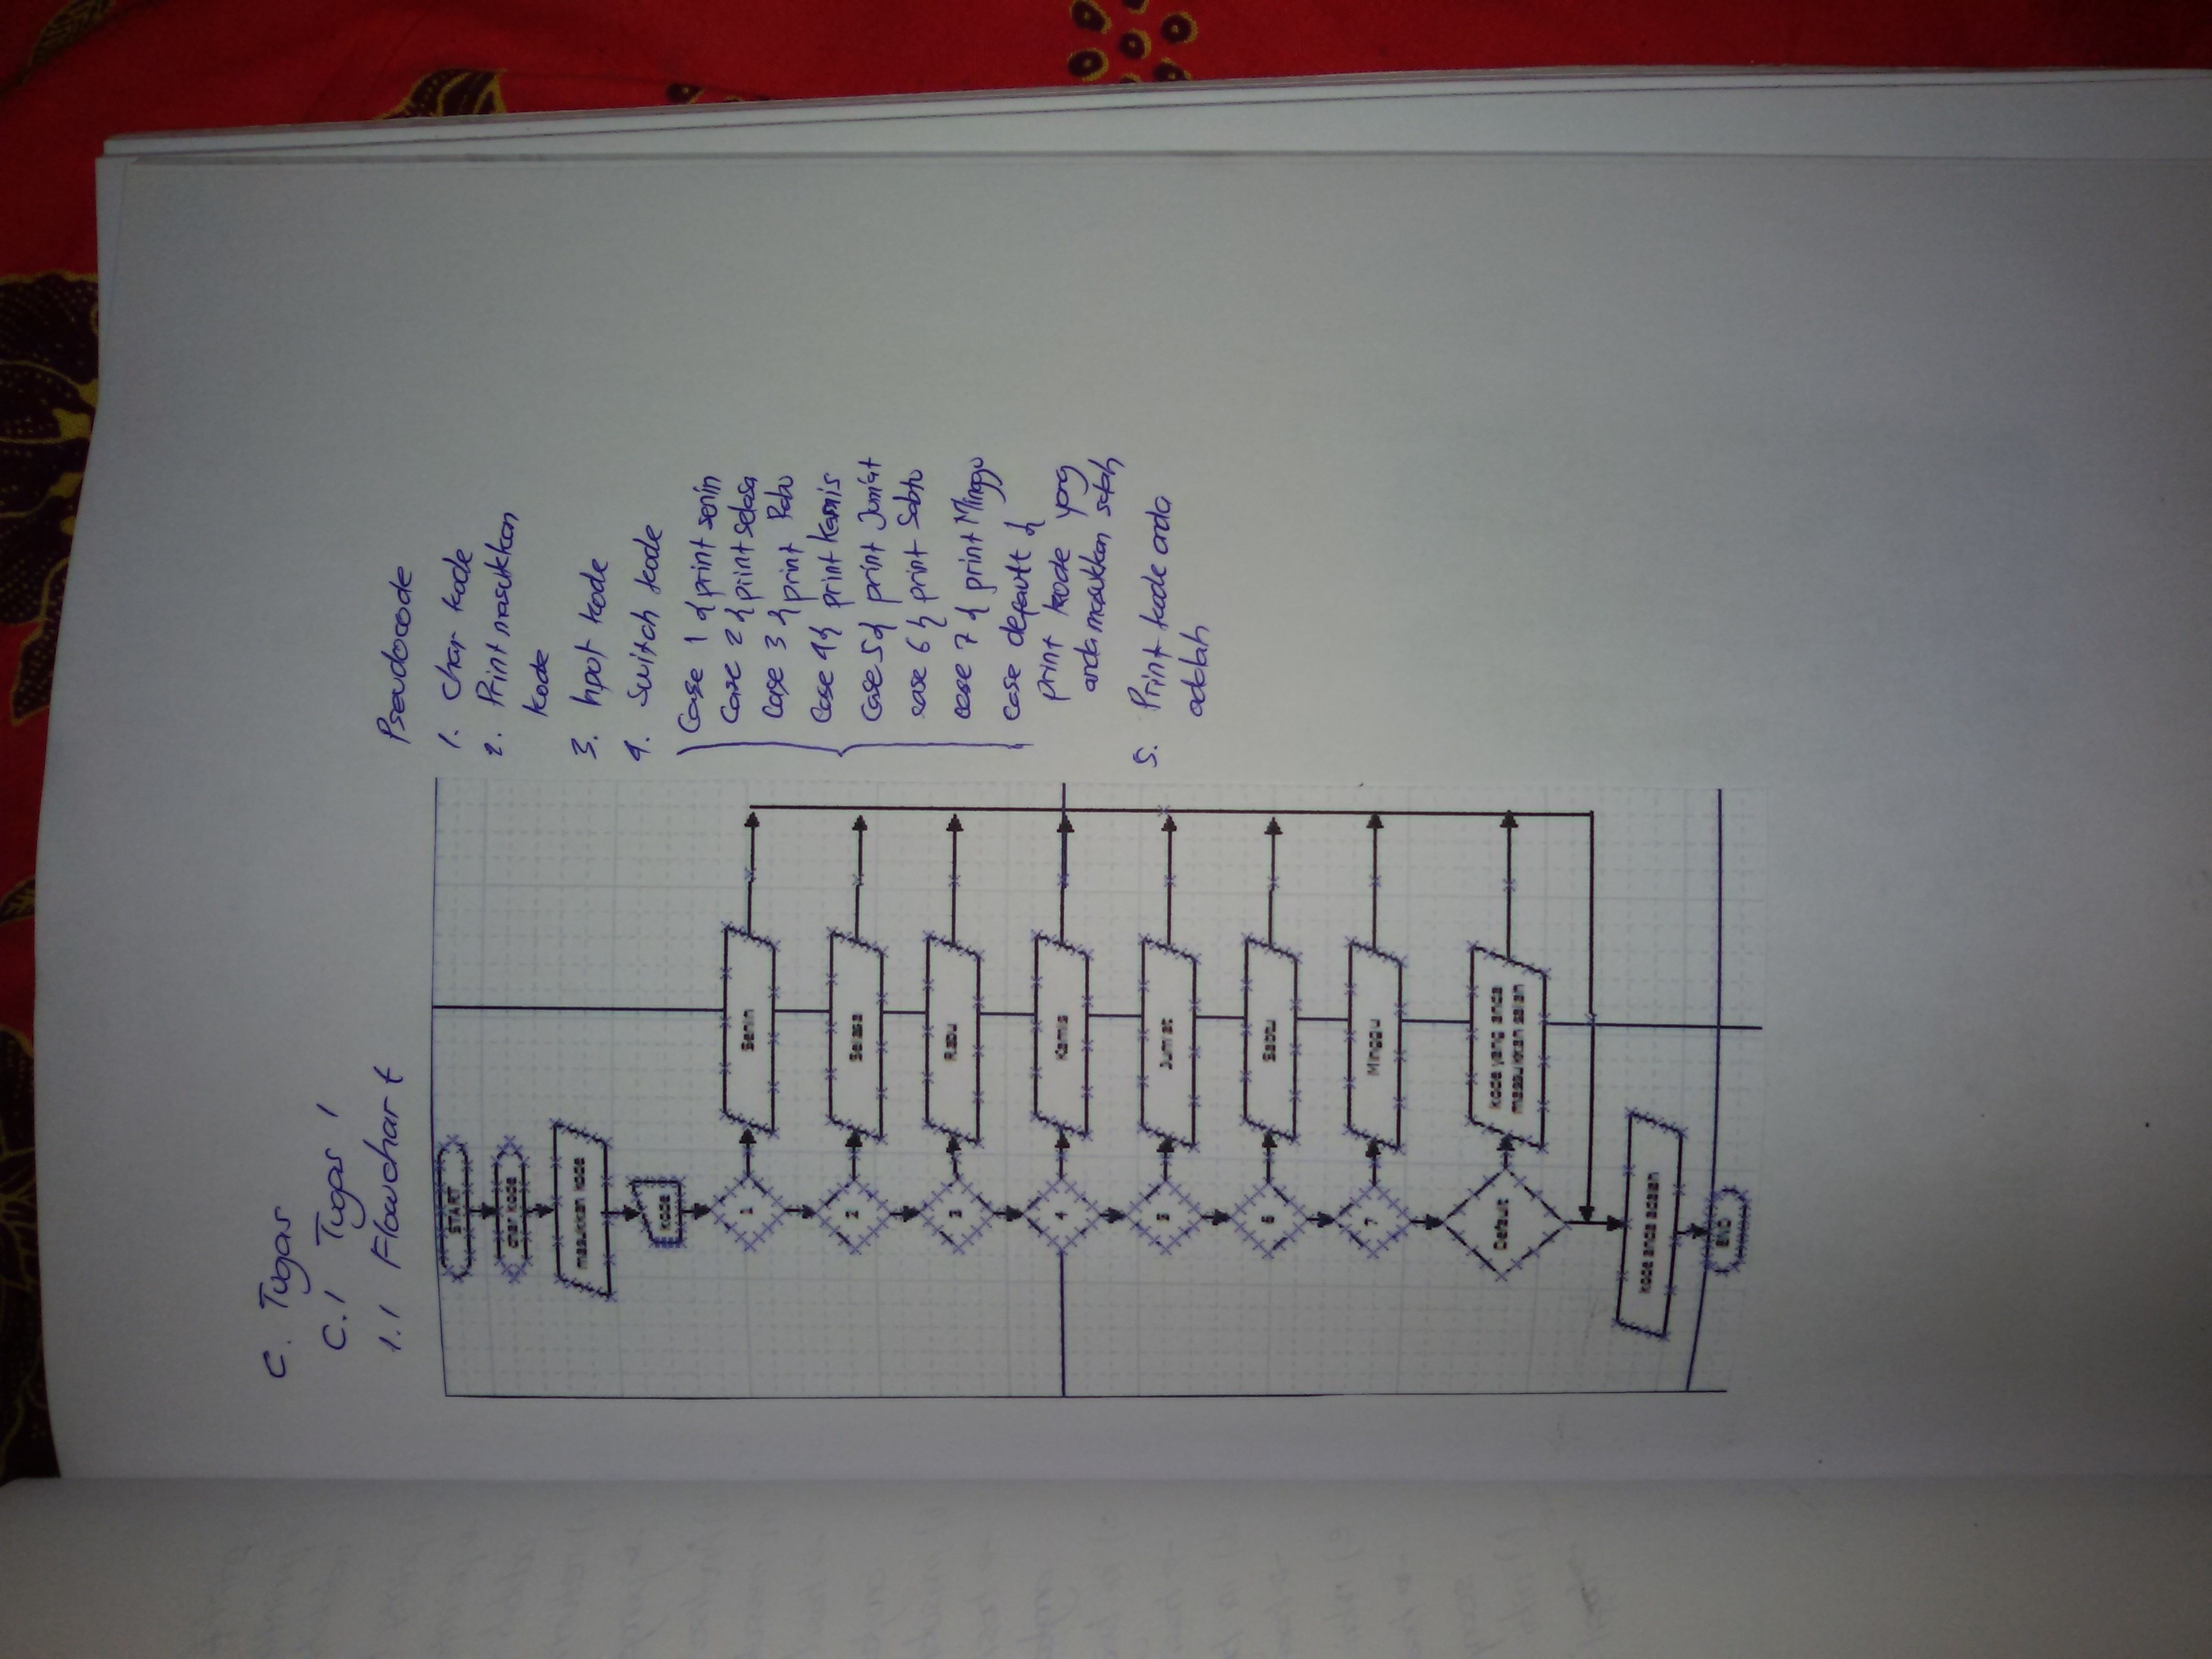 C. Tugas
C.1 Tugas 1
1.1 Flowchart
START
char kode
masukkan kode
kode
1
Senin
2
Selasa
3
Rabu
4
Kamis
5
Jum'at
6
Sabtu
7
Minggu
Default
kode yang anda
massukkan salah
kode anda adalah
END
Pseudocode
1. Char kode
2. Print masukkan
kode
3. Input kode
4. Switch kode
Case 1 { print senin
Case 2 { print selasa
Case 3 { print Rabu
Case 4 { print Kamis
Case 5 { print Jum'at
case 6 { print Sabtu
case 7 { print Minggu
case default {
print kode yang
anda masukkan salah
5. Print kode anda
adalah